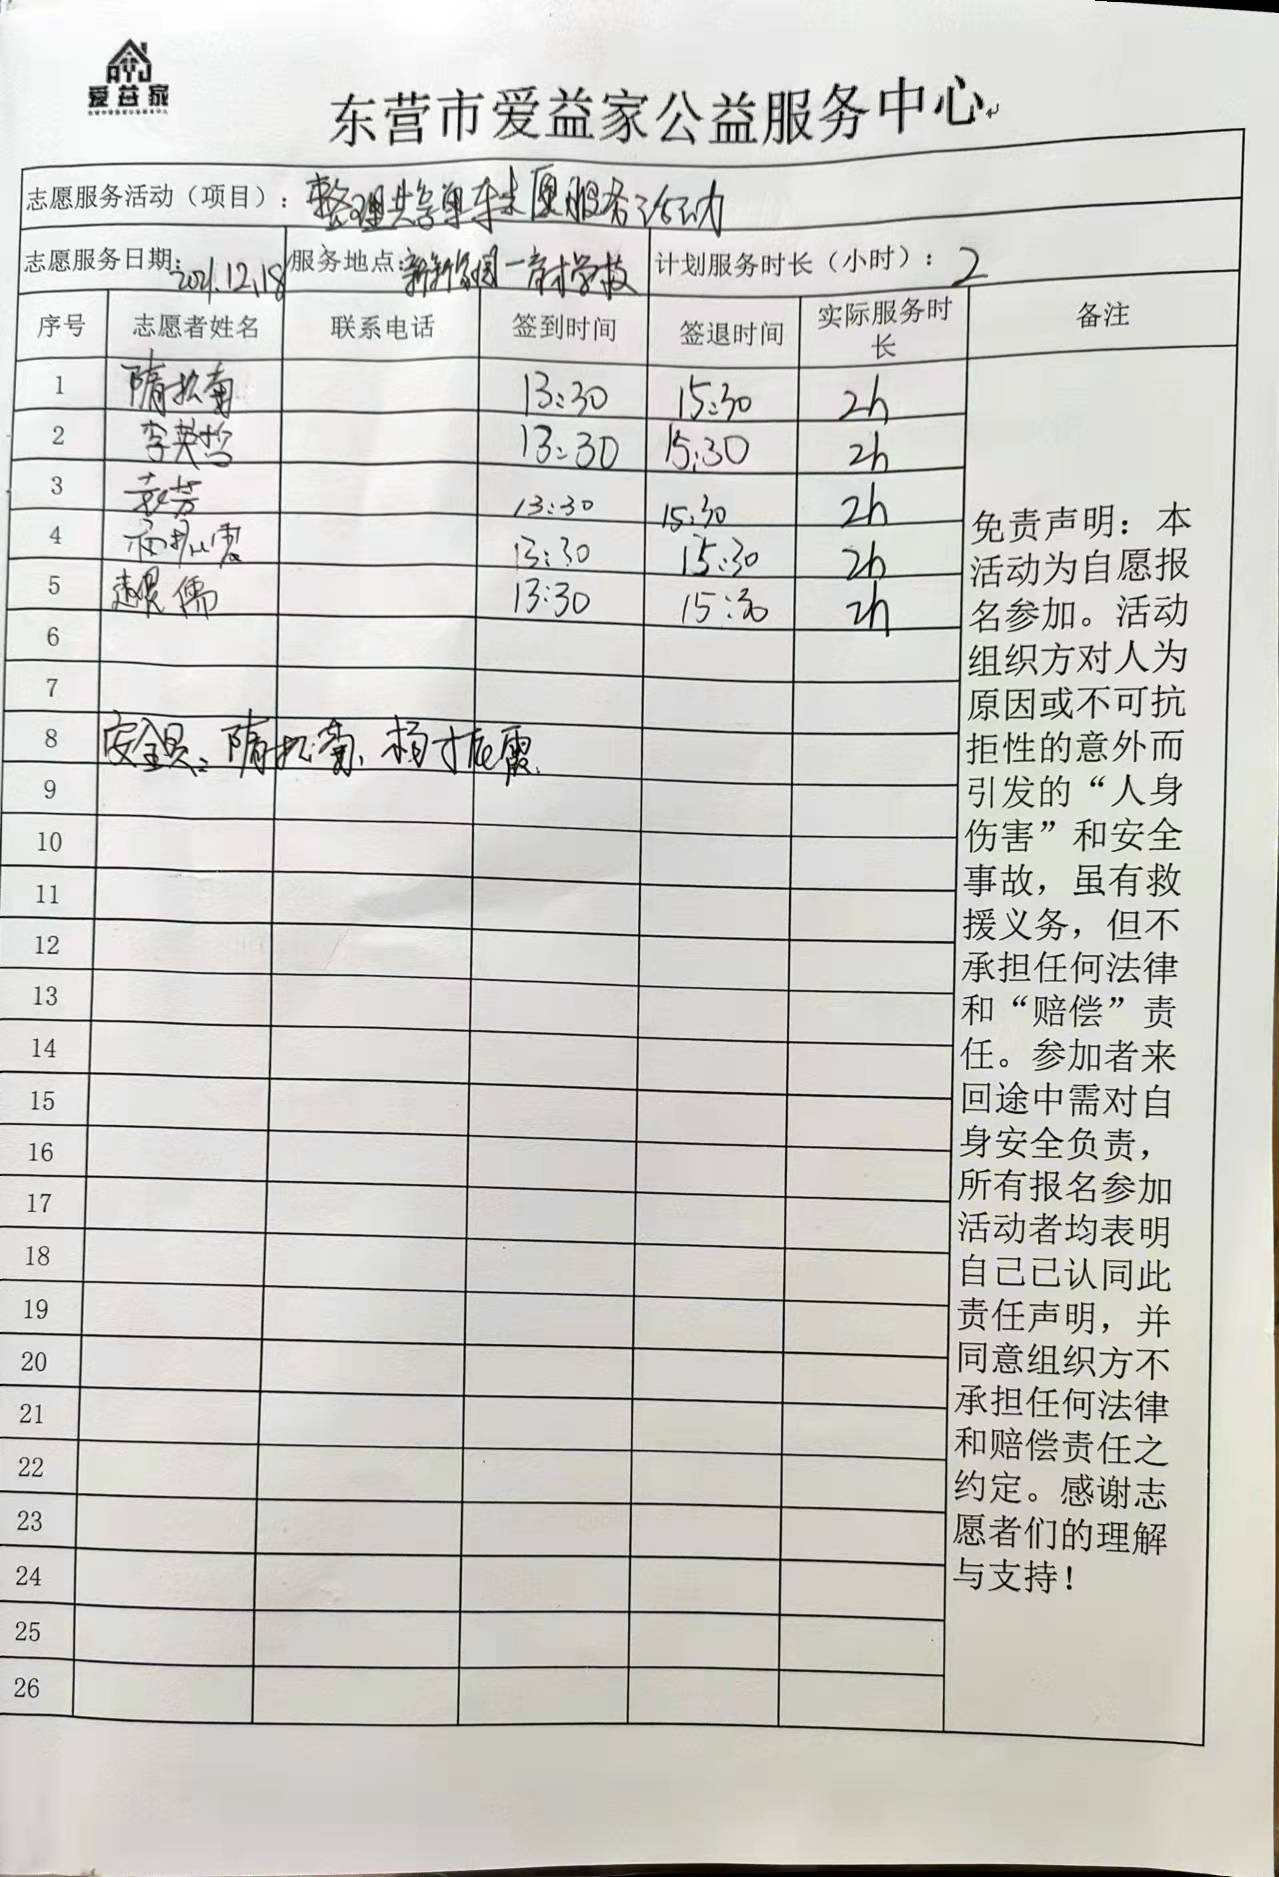 AYJ
爱益家
东营市爱益家公益服务中心
志愿服务活动（项目）：整理共享单车志愿服务活动
志愿服务日期：2021.12.18 服务地点：新新家园一育才学校 计划服务时长（小时）：2
序号 志愿者姓名 联系电话 签到时间 签退时间 实际服务时长 备注
1 隋松菊 13:30 15:30 2h
2 李英哲 13:30 15:30 2h
3 袁芳 13:30 15:30 2h
4 13:30 15:30 2h
5 儒 13:30 15:30 2h
6
7
8 安全员：隋松菊、杨振霞
9
10
11
12
13
14
15
16
17
18
19
20
21
22
23
24
25
26
免责声明：本
活动为自愿报
名参加。活动
组织方对人为
原因或不可抗
拒性的意外而
引发的“人身
伤害”和安全
事故，虽有救
援义务，但不
承担任何法律
和“赔偿”责
任。参加者来
回途中需对自
身安全负责，
所有报名参加
活动者均表明
自己已认同此
责任声明，并
同意组织方不
承担任何法律
和赔偿责任之
约定。感谢志
愿者们的理解
与支持！